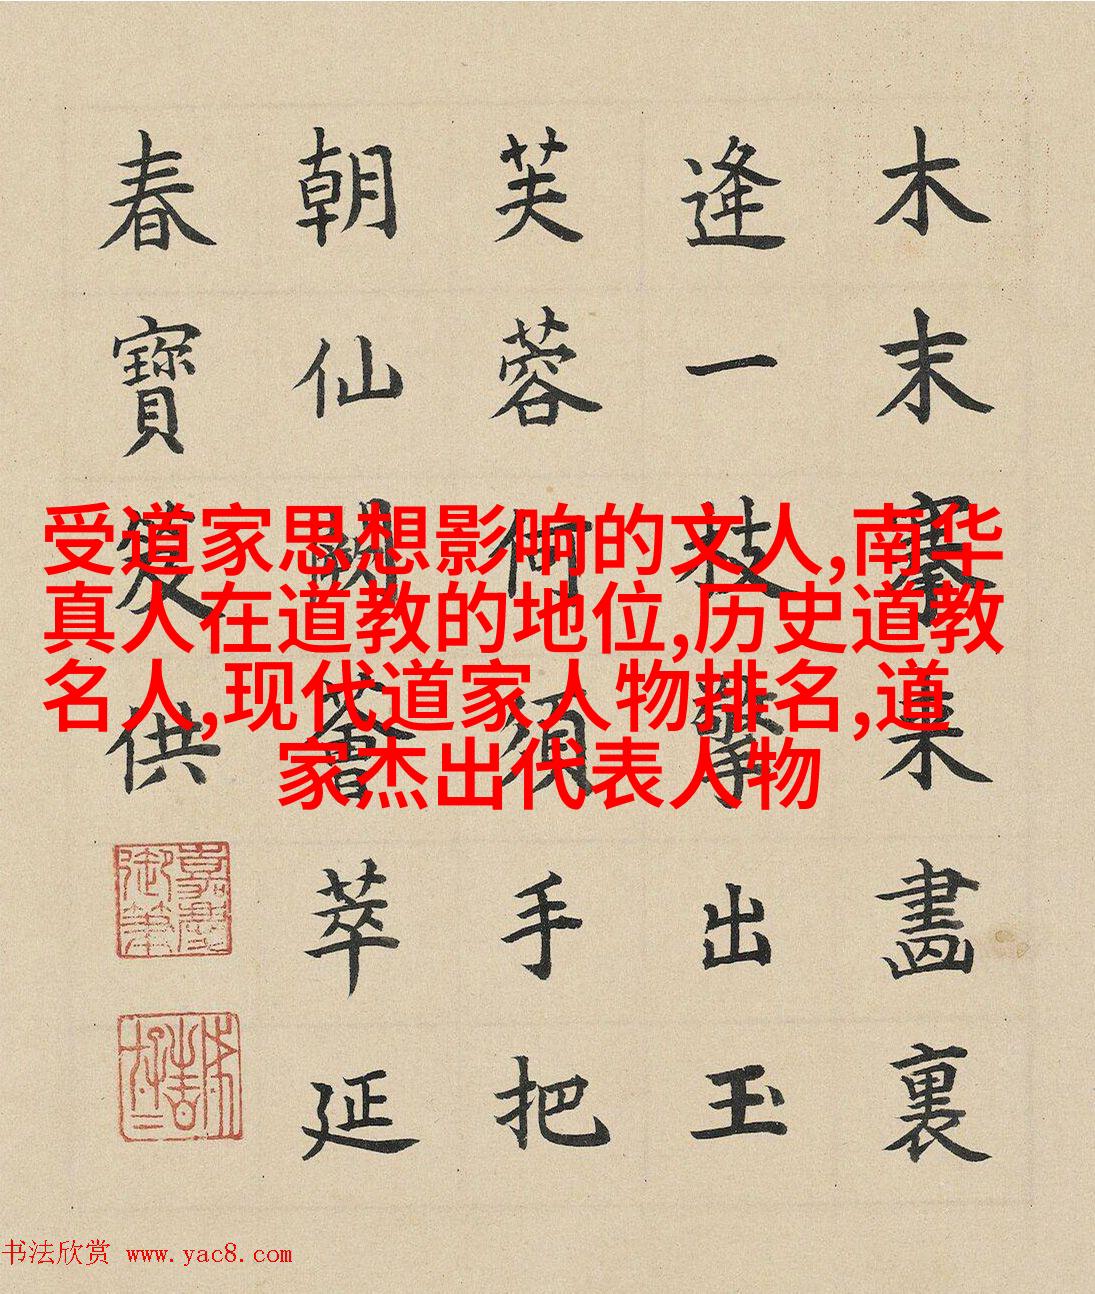 木末搴來畫裏
逢一枝擎出玉
芙蓉何須手把
朝仙薈萃延
春寶篆供
嘉慶御筆
受道家思想影响的文人,南华
真人在道教的地位,历史道教
名人,现代道家人物排名,道
家杰出代表人物
书法欣赏 www.yac8.com